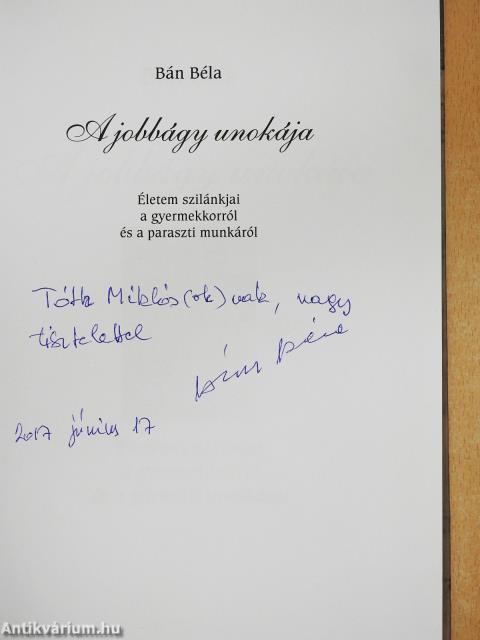 Bán Béla
A jobbágy unokája
Életem szilánkjai
a gyermekkorról
és a paraszti munkáról
Tóth Miklós(ok)nak, nagy
tisztelettel
Bán Béla
2017 június 17
Antikvárium.hu